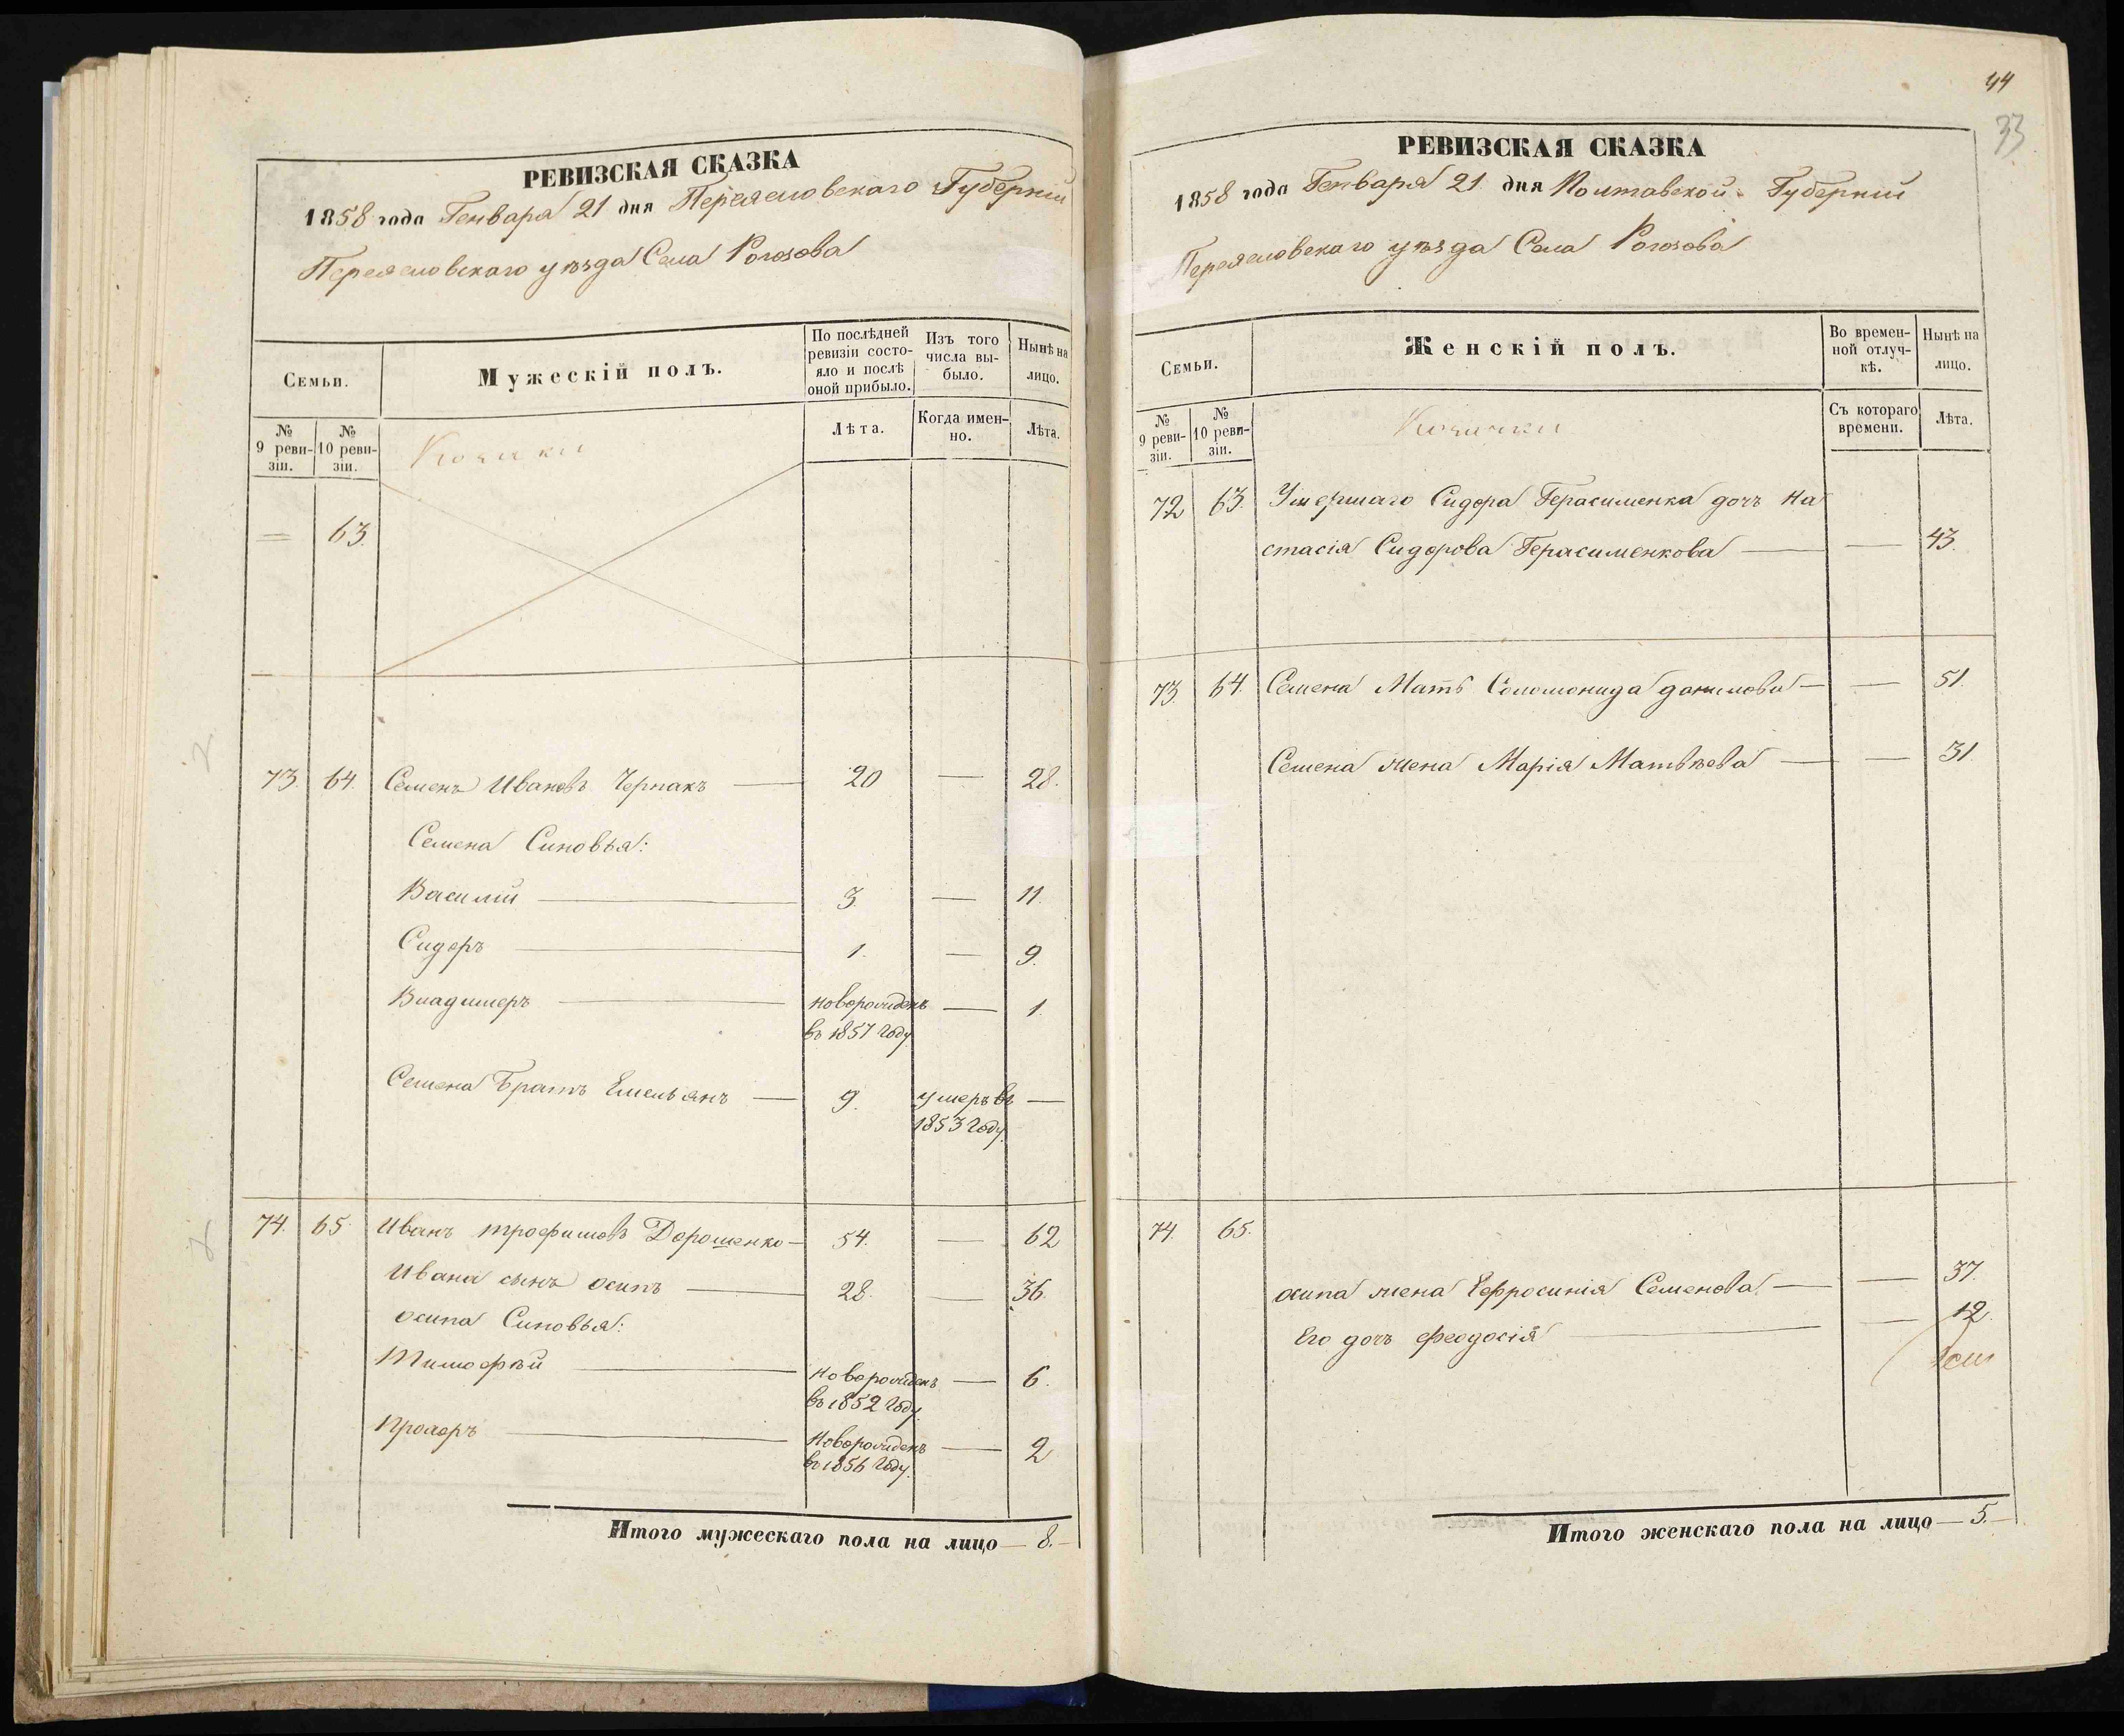 РЕВИЗСКАЯ СКАЗКА
1858 года Генваря 21 дня Переяславскаго Губерніи
Переяславскаго уѣзда Села Рогозова
Семьи.
Мужескій полъ.
По послѣдней ревизіи состояло и послѣ оной прибыло.
Изъ того числа выбыло.
Нынѣ на лицо.
№ 9 ревизіи.
№ 10 ревизіи.
Лѣта.
Когда именно.
Лѣта.
= 63.
73. 64. Семенъ Ивановъ Черпакъ — 20 — 28.
Семена Синовья:
Василій — 3. — 11.
Сидоръ — 1. — 9.
Владимеръ — новорожденъ — 1.
въ 1857 году.
Семена Братъ Емельянъ — 9. умеръ въ —
1853 году.
74. 65. Иванъ трофимовъ Дорошенко — 54. — 62
Ивана сынъ осипъ — 28. — 36.
осипа Синовья:
Тимофѣй — новорожденъ — 6.
въ 1852 году.
Прохоръ — Новорожденъ — 2
въ 1856 году.
Итого мужескаго пола на лицо — 8. —
44
33
РЕВИЗСКАЯ СКАЗКА
1858 года Генваря 21 дня Полтавской Губерніи
Переяславскаго уѣзда Села Рогозова
Семьи.
Женскій полъ.
Во временной отлучкѣ.
Нынѣ на лицо.
№ 9 ревизіи.
№ 10 ревизіи.
Съ котораго времени.
Лѣта.
72 63. Умершаго Сидора Герасименка дочь На
стасія Сидорова Герасименкова — — 43.
73. 64. Семена Мать Соломонида данилова — — 51.
Семена жена Марія Матвѣева — — 31
74. 65.
осипа жена Ефросинія Семенова — — 37.
Его дочь феодосія — — 12.
Итого женскаго пола на лицо — 5. —